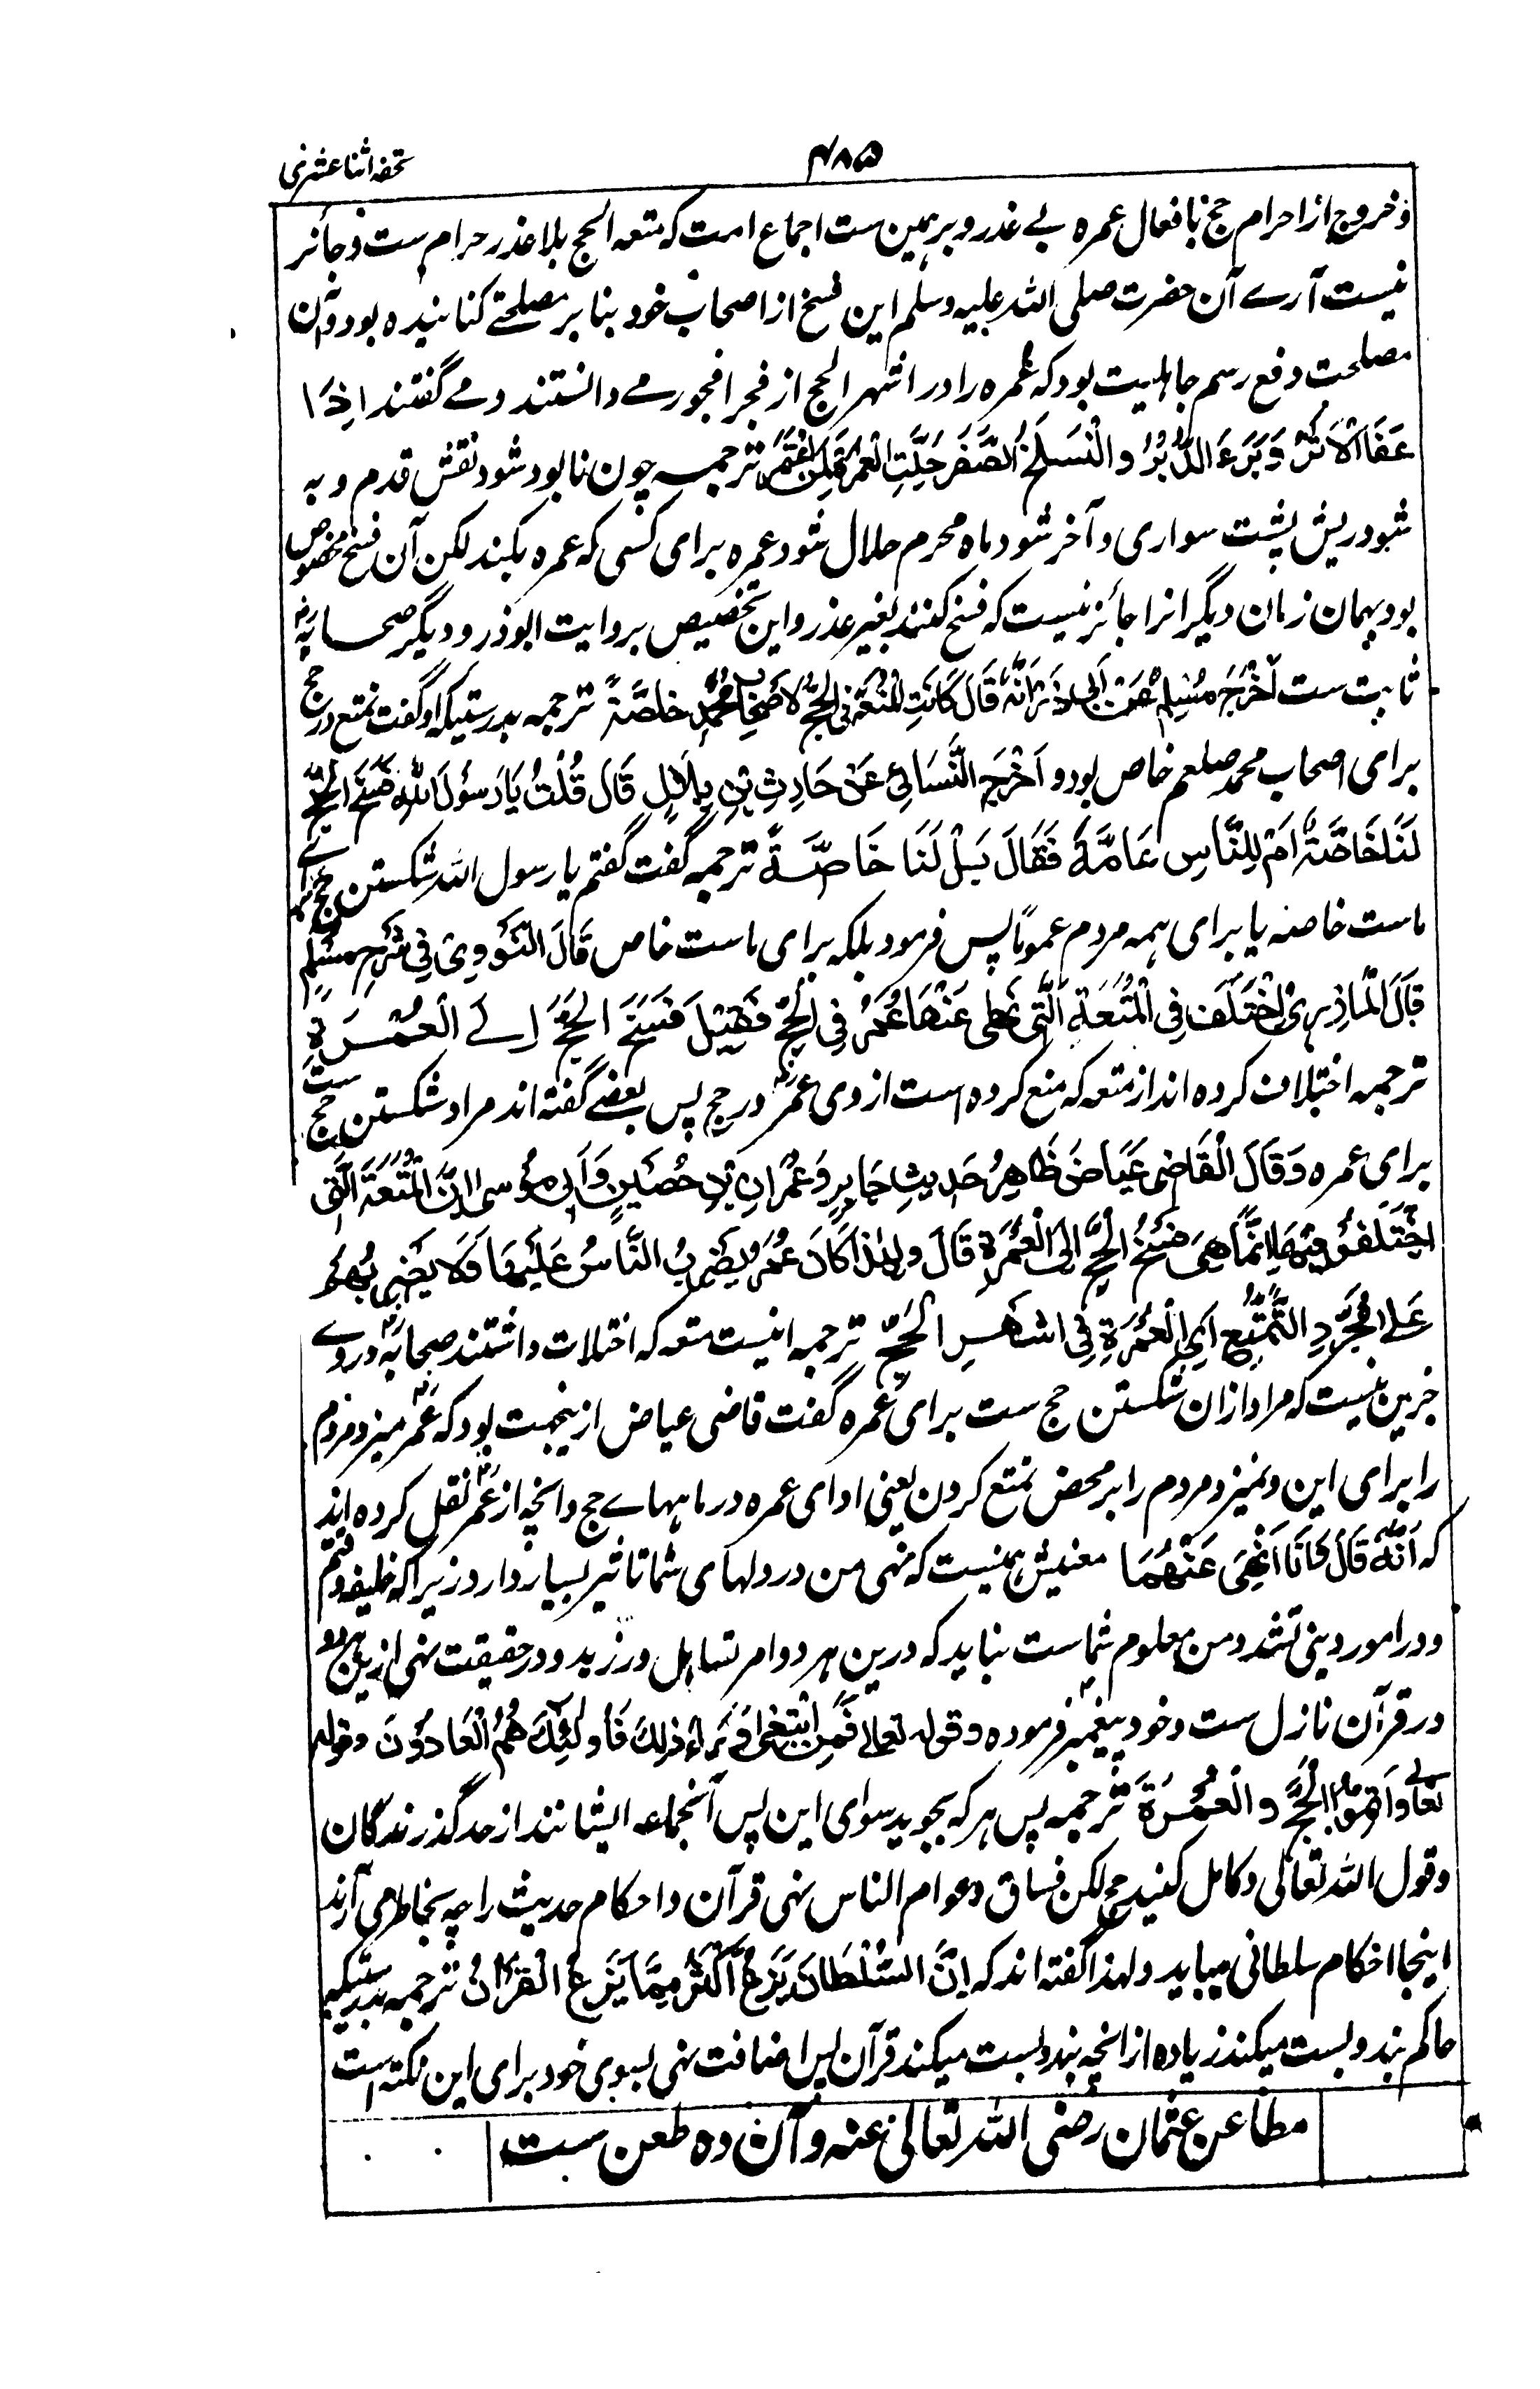 ۴۸۵
تحفه اثنا عشری
و خروج از احرام حج بافعال عمره بے عذر و برہمین ست اجماع امت که متعه الحج بلا عذر حرام ست و جائز
نیست آرے آن حضرت صلی الله علیه وسلم این فسخ از اصحاب خود بنا بر مصلحتے کنانیده بود و آن
مصلحت دفع رسم جاہلیت بود که عمره را در اشہر الحج از فجر افجور مے دانستند و مے گفتند اِذَا
عَفَا الْاَثَرُ وَبَرَءَ الدُّبُرُ وانْسَلَخَ الصَّفَرَ حَلَّتِ الْعُمْرَةُ لِمَنِ اعْتَمَرَ ترجمه چون نابود شود نقش قدم و به
شود ریش پشت سواری و آخر شود ماه محرم حلال شود عمره برای کسی که عمره بکند لکن آن فسخ مخصوص
بود بہمان زمان دیگر انرا جائز نیست که فسخ کنند بغیر عذر و این تخصیص بروایت ابوذر و دیگر صحابہؓ
ثابت ست اَخْرَجَ مُسْلِمٌ عَنْ اَبِی ذَرٍّ اَنَّهُ قَالَ کَانَتِ الْمُتْعَةُ فِی الْحَجِّ لِاَصْحَابِ مُحَمَّدٍ خَاصَّةً ترجمه بدرستیکه او گفت تمتع در حج
برای اصحاب محمد صلعم خاص بود و اَخْرَجَ النَّسَائِی عَنْ حَارِثِ بْنِ بِلَالٍ قَالَ قُلْتُ یَا رَسُولَ اللهِ فَسْخُ الْحَجِّ
لَنَا خَاصَّةً اَمْ لِلنَّاسِ عَامَّةً فَقَالَ بَلْ لَنَا خَاصَّةً ترجمه گفت گفتم یا رسول الله شکستن حج برای
ماست خاصه یا برای ہمه مردم عموماً پس فرمود بلکه برای ماست خاص قَالَ النَّوَوِیُّ فِی شَرْحِ مُسْلِمٍ
قَالَ الْمَاذِرِیُّ اخْتُلِفَ فِی الْمُتْعَةِ الَّتِی نَهٰی عَنْهَا عُمَرُ فِی الْحَجِّ فَقِیْلَ فَسْخُ الْحَجِّ اِلَے الْعُمْرَةِ
ترجمه اختلاف کرده اند از متعه که منع کرده است از وی عمرؓ در حج پس بعضے گفته اند مراد شکستن حج ست
برای عمره وَقَالَ الْقَاضِی عَیَاضُ ظَاهِرُ حَدِیْثِ جَابِرٍ وَعِمْرَانِ بْنِ حُصَیْنٍ وَاَبِی مُوسٰی اِنَّ الْمُتْعَةَ الَّتِی
اخْتَلَفُوْا فِیْهَا اِنَّمَا هِیَ فَسْخُ الْحَجِّ اِلَی الْعُمْرَةِ قَالَ وَلِهٰذَا کَانَ عُمَرُ یَضْرِبُ النَّاسَ عَلَیْهَا وَلَا یَضْرِبُهُمْ
عَلٰی مُجَرَّدِ التَّمَتُّعِ اَیِ الْعُمْرَةِ فِی اَشْهُرِ الْحَجِّ ترجمه انیست متعه که اختلاف داشتند صحابهؓ در وے
جزین نیست که مراد ازان شکستن حج ست برای عمره گفت قاضی عیاض ازینجہت بود که عمرؓ میزد مردم
را برای این و نمیزد مردم را بر محض تمتع کردن یعنی ادای عمره در ماہهاے حج و انچه از عمرؓ نقل کرده اند
که اَنَّهُ قَالَ وَاَنَا اَنْهٰی عَنْهُمَا معنیش ہمنیست که نہی من در دلہای شما تاثیر بسیار دارد زیرا که خلیفه وقتم
و در امور دینی تشدد من معلوم شماست نباید که درین ہر دو امر تساہل ورزید و در حقیقت نہی ازین ہر دو
در قرآن نازل ست و خود پیغمبرؐ فرموده و قوله تعالے فَمَنِ ابْتَغٰی وَرَاءَ ذٰلِكَ فَاُولٰئِكَ هُمُ الْعَادُوْنَ وقوله
تعالے وَاَتِمُّوا الْحَجَّ وَالْعُمْرَةَ ترجمه پس ہر که بجوید سوای این پس آنجماعه ایشانند از حد گذرندگان
و قول الله تعالی و کامل کنید حج لکن فساق و عوام الناس نہی قرآن و احکام حدیث را چه بخاطر می آرند
اینجا احکام سلطانی میباید و لہذا گفته اند که اِنَّ السُّلْطَانَ یَزَعُ اَکْثَرَ مِمَّا یَزَعُ الْقُرْاٰنُ ترجمه بدرستیکه
حاکم بند و بست میکند زیاده از انچه بند و بست میکند قرآن پس اضافت نہی بسوی خود برای این نکته است
مطاعن عثمان رضی الله تعالی عنه و آن ده طعن ست